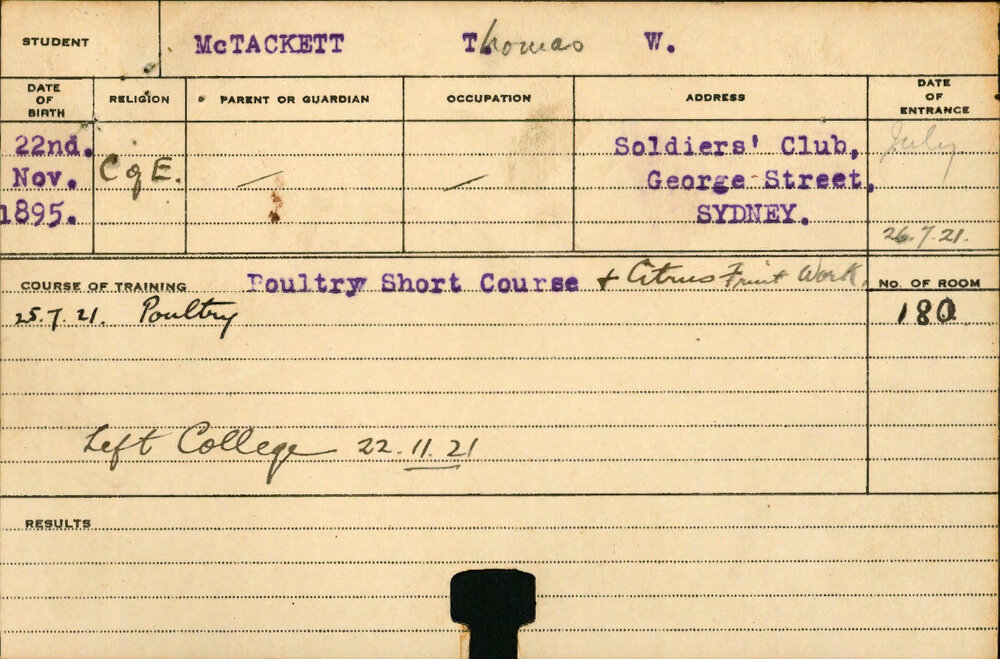 STUDENT McTACKETT Thomas W.
DATE OF BIRTH RELIGION PARENT OR GUARDIAN OCCUPATION ADDRESS DATE OF ENTRANCE
22nd. Nov. 1895.
C of E.
—
—
Soldiers' Club,
George Street,
SYDNEY.
July
26.7.21.
COURSE OF TRAINING Poultry Short Course + Citrus Fruit Work. No. OF ROOM
25.7.21. Poultry 180
Left College 22.11.21
RESULTS